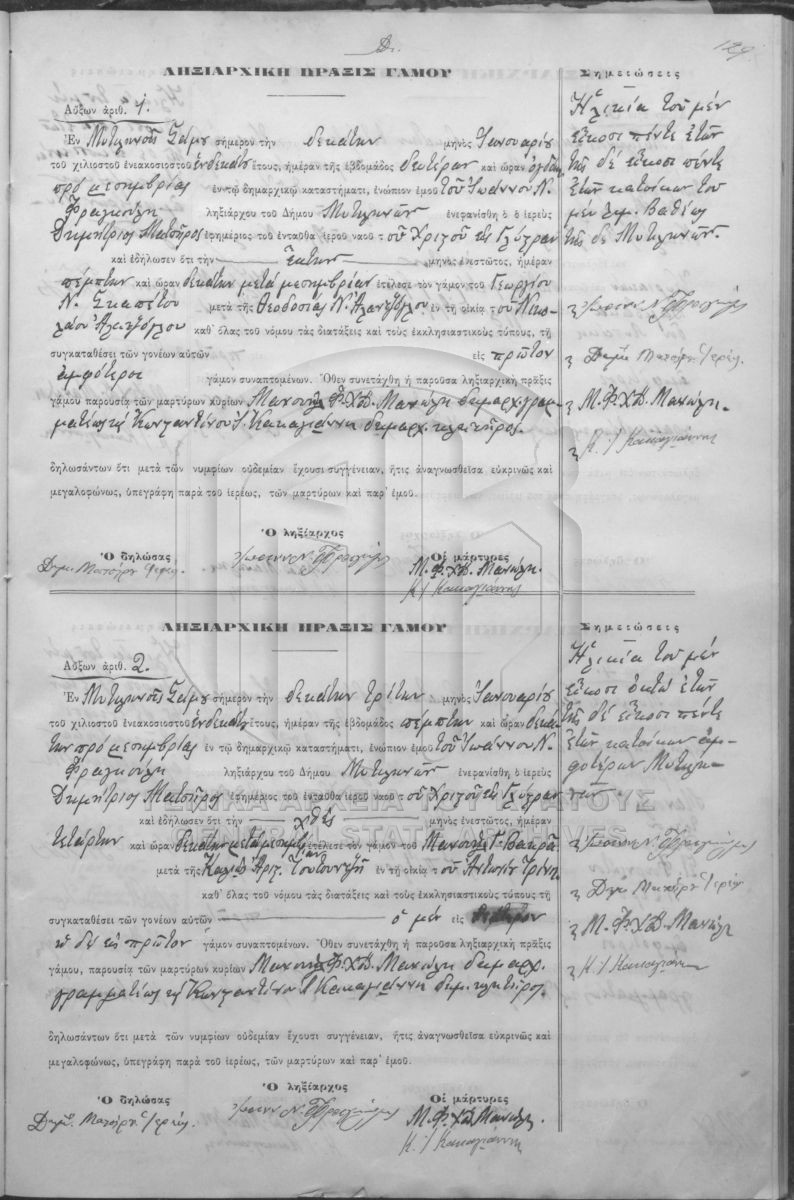 129
ΛΗΞΙΑΡΧΙΚΗ ΠΡΑΞΙΣ ΓΑΜΟΥ
Αὔξων ἀριθ. 1.
Ἐν Μυτιληνιοῖς Σάμου σήμερον τὴν δεκάτην μηνὸς Ἰανουαρίου
τοῦ χιλιοστοῦ ἐνεακοσιοστοῦ ἑνδεκάτου ἔτους, ἡμέραν τῆς ἑβδομάδος δευτέραν καὶ ὥραν ὀγδόην
πρὸ μεσημβρίας ἐν τῷ δημαρχικῷ καταστήματι, ἐνώπιον ἐμοῦ τοῦ Ἰωάννου Ν.
Φραγκούλη ληξιάρχου τοῦ Δήμου Μυτιληνιῶν ἐνεφανίσθη ὁ ἱερεὺς
Δημήτριος ἐφημέριος τοῦ ἐνταῦθα ἱεροῦ ναοῦ τοῦ Χριστοῦ
καὶ ἐδήλωσεν ὅτι τὴν ἕκτην μηνὸς ἐνεστῶτος, ἡμέραν
πέμπτην καὶ ὥραν δεκάτην μετὰ μεσημβρίαν ἐτέλεσε τὸν γάμον τοῦ Γεωργίου
Ν. Σκαπέτου μετὰ τῆς Θεοδοσίας Ν. ἐν τῇ οἰκίᾳ τοῦ Νικο-
λάου
καθ᾽ ὅλας τοῦ νόμου τὰς διατάξεις καὶ τοὺς ἐκκλησιαστικοὺς τύπους, τῇ
συγκαταθέσει τῶν γονέων αὐτῶν εἰς πρῶτον
ἀμφότεροι γάμον συναπτομένων. Ὅθεν συνετάχθη ἡ παροῦσα ληξιαρχικὴ πρᾶξις
γάμου παρουσίᾳ τῶν μαρτύρων κυρίων Μανουὴλ Φ. Χ΄΄Δ. Μανώλη δημαρχ. γραμ-
ματέως καὶ Κωνσταντίνου Ι. Κακαγιάννη δημαρχ. κλητῆρος.
δηλωσάντων ὅτι μετὰ τῶν νυμφίων οὐδεμίαν ἔχουσι συγγένειαν, ἥτις ἀναγνωσθεῖσα εὐκρινῶς καὶ
μεγαλοφώνως, ὑπεγράφη παρὰ τοῦ ἱερέως, τῶν μαρτύρων καὶ παρ᾽ ἐμοῦ.
Ὁ δηλώσας
Ὁ ληξίαρχος
Ἰωάνν. Ν. Φραγκούλης
Οἱ μάρτυρες
Μ. Φ. Χ΄΄Δ. Μανώλη.
Κ. Ι. Κακαγιάννης
Σημειώσεις
Ἡλικία τοῦ μὲν
εἴκοσι πέντε ἐτῶν
τῆς δὲ εἴκοσι πέντε
ἐτῶν κατοίκων τοῦ
μὲν Δημ. Βαθέος
τῆς δὲ Μυτιληνιῶν.
Ἰωάνν. Ν. Φραγκούλης
Μ. Φ. Χ΄΄Δ. Μανώλη.
Κ. Ι. Κακαγιάννης
ΛΗΞΙΑΡΧΙΚΗ ΠΡΑΞΙΣ ΓΑΜΟΥ
Αὔξων ἀριθ. 2.
Ἐν Μυτιληνιοῖς Σάμου σήμερον τὴν δεκάτην τρίτην μηνὸς Ἰανουαρίου
τοῦ χιλιοστοῦ ἐνεακοσιοστοῦ ἑνδεκάτου ἔτους, ἡμέραν τῆς ἑβδομάδος πέμπτην καὶ ὥραν δεκά-
την πρὸ μεσημβρίας ἐν τῷ δημαρχικῷ καταστήματι, ἐνώπιον ἐμοῦ τοῦ Ἰωάννου Ν.
Φραγκούλη ληξιάρχου τοῦ Δήμου Μυτιληνιῶν ἐνεφανίσθη ὁ ἱερεὺς
Δημήτριος ἐφημέριος τοῦ ἐνταῦθα ἱεροῦ ναοῦ τοῦ Χριστοῦ
καὶ ἐδήλωσεν ὅτι τὴν χθὲς μηνὸς ἐνεστῶτος, ἡμέραν
τετάρτην καὶ ὥραν ἐτέλεσε τὸν γάμον τοῦ Μανουὴλ Γ.
μετὰ τῆς ἐν τῇ οἰκίᾳ τοῦ Ἀντωνίου
καθ᾽ ὅλας τοῦ νόμου τὰς διατάξεις καὶ τοὺς ἐκκλησιαστικοὺς τύπους τῇ
συγκαταθέσει τῶν γονέων αὐτῶν ὁ μὲν εἰς δεύτερον
ἡ δὲ εἰς πρῶτον γάμον συναπτομένων. Ὅθεν συνετάχθη ἡ παροῦσα ληξιαρχικὴ πρᾶξις
γάμου, παρουσίᾳ τῶν μαρτύρων κυρίων Μανουὴλ Φ. Χ΄΄Δ. Μανώλη δημαρχ.
γραμματέως καὶ Κωνσταντίνου Ι. Κακαγιάννη δημ. κλητῆρος.
δηλωσάντων ὅτι μετὰ τῶν νυμφίων οὐδεμίαν ἔχουσι συγγένειαν, ἥτις ἀναγνωσθεῖσα εὐκρινῶς καὶ
μεγαλοφώνως, ὑπεγράφη παρὰ τοῦ ἱερέως, τῶν μαρτύρων καὶ παρ᾽ ἐμοῦ.
Ὁ δηλώσας
Ὁ ληξίαρχος
Ἰωάνν. Ν. Φραγκούλης
Οἱ μάρτυρες
Μ. Φ. Χ΄΄Δ. Μανώλη.
Κ. Ι. Κακαγιάννη
Σημειώσεις
Ἡλικία τοῦ μὲν
εἴκοσι ὀκτὼ ἐτῶν
τῆς δὲ εἴκοσι πέντε
ἐτῶν κατοίκων ἀμ-
φοτέρων Μυτιλη-
νιῶν.
Ἰωάνν. Ν. Φραγκούλης
Μ. Φ. Χ΄΄Δ. Μανώλη
Κ. Ι. Κακαγιάννη
ΓΕΝΙΚΑ ΑΡΧΕΙΑ ΤΟΥ ΚΡΑΤΟΥΣ
GENERAL STATE ARCHIVES